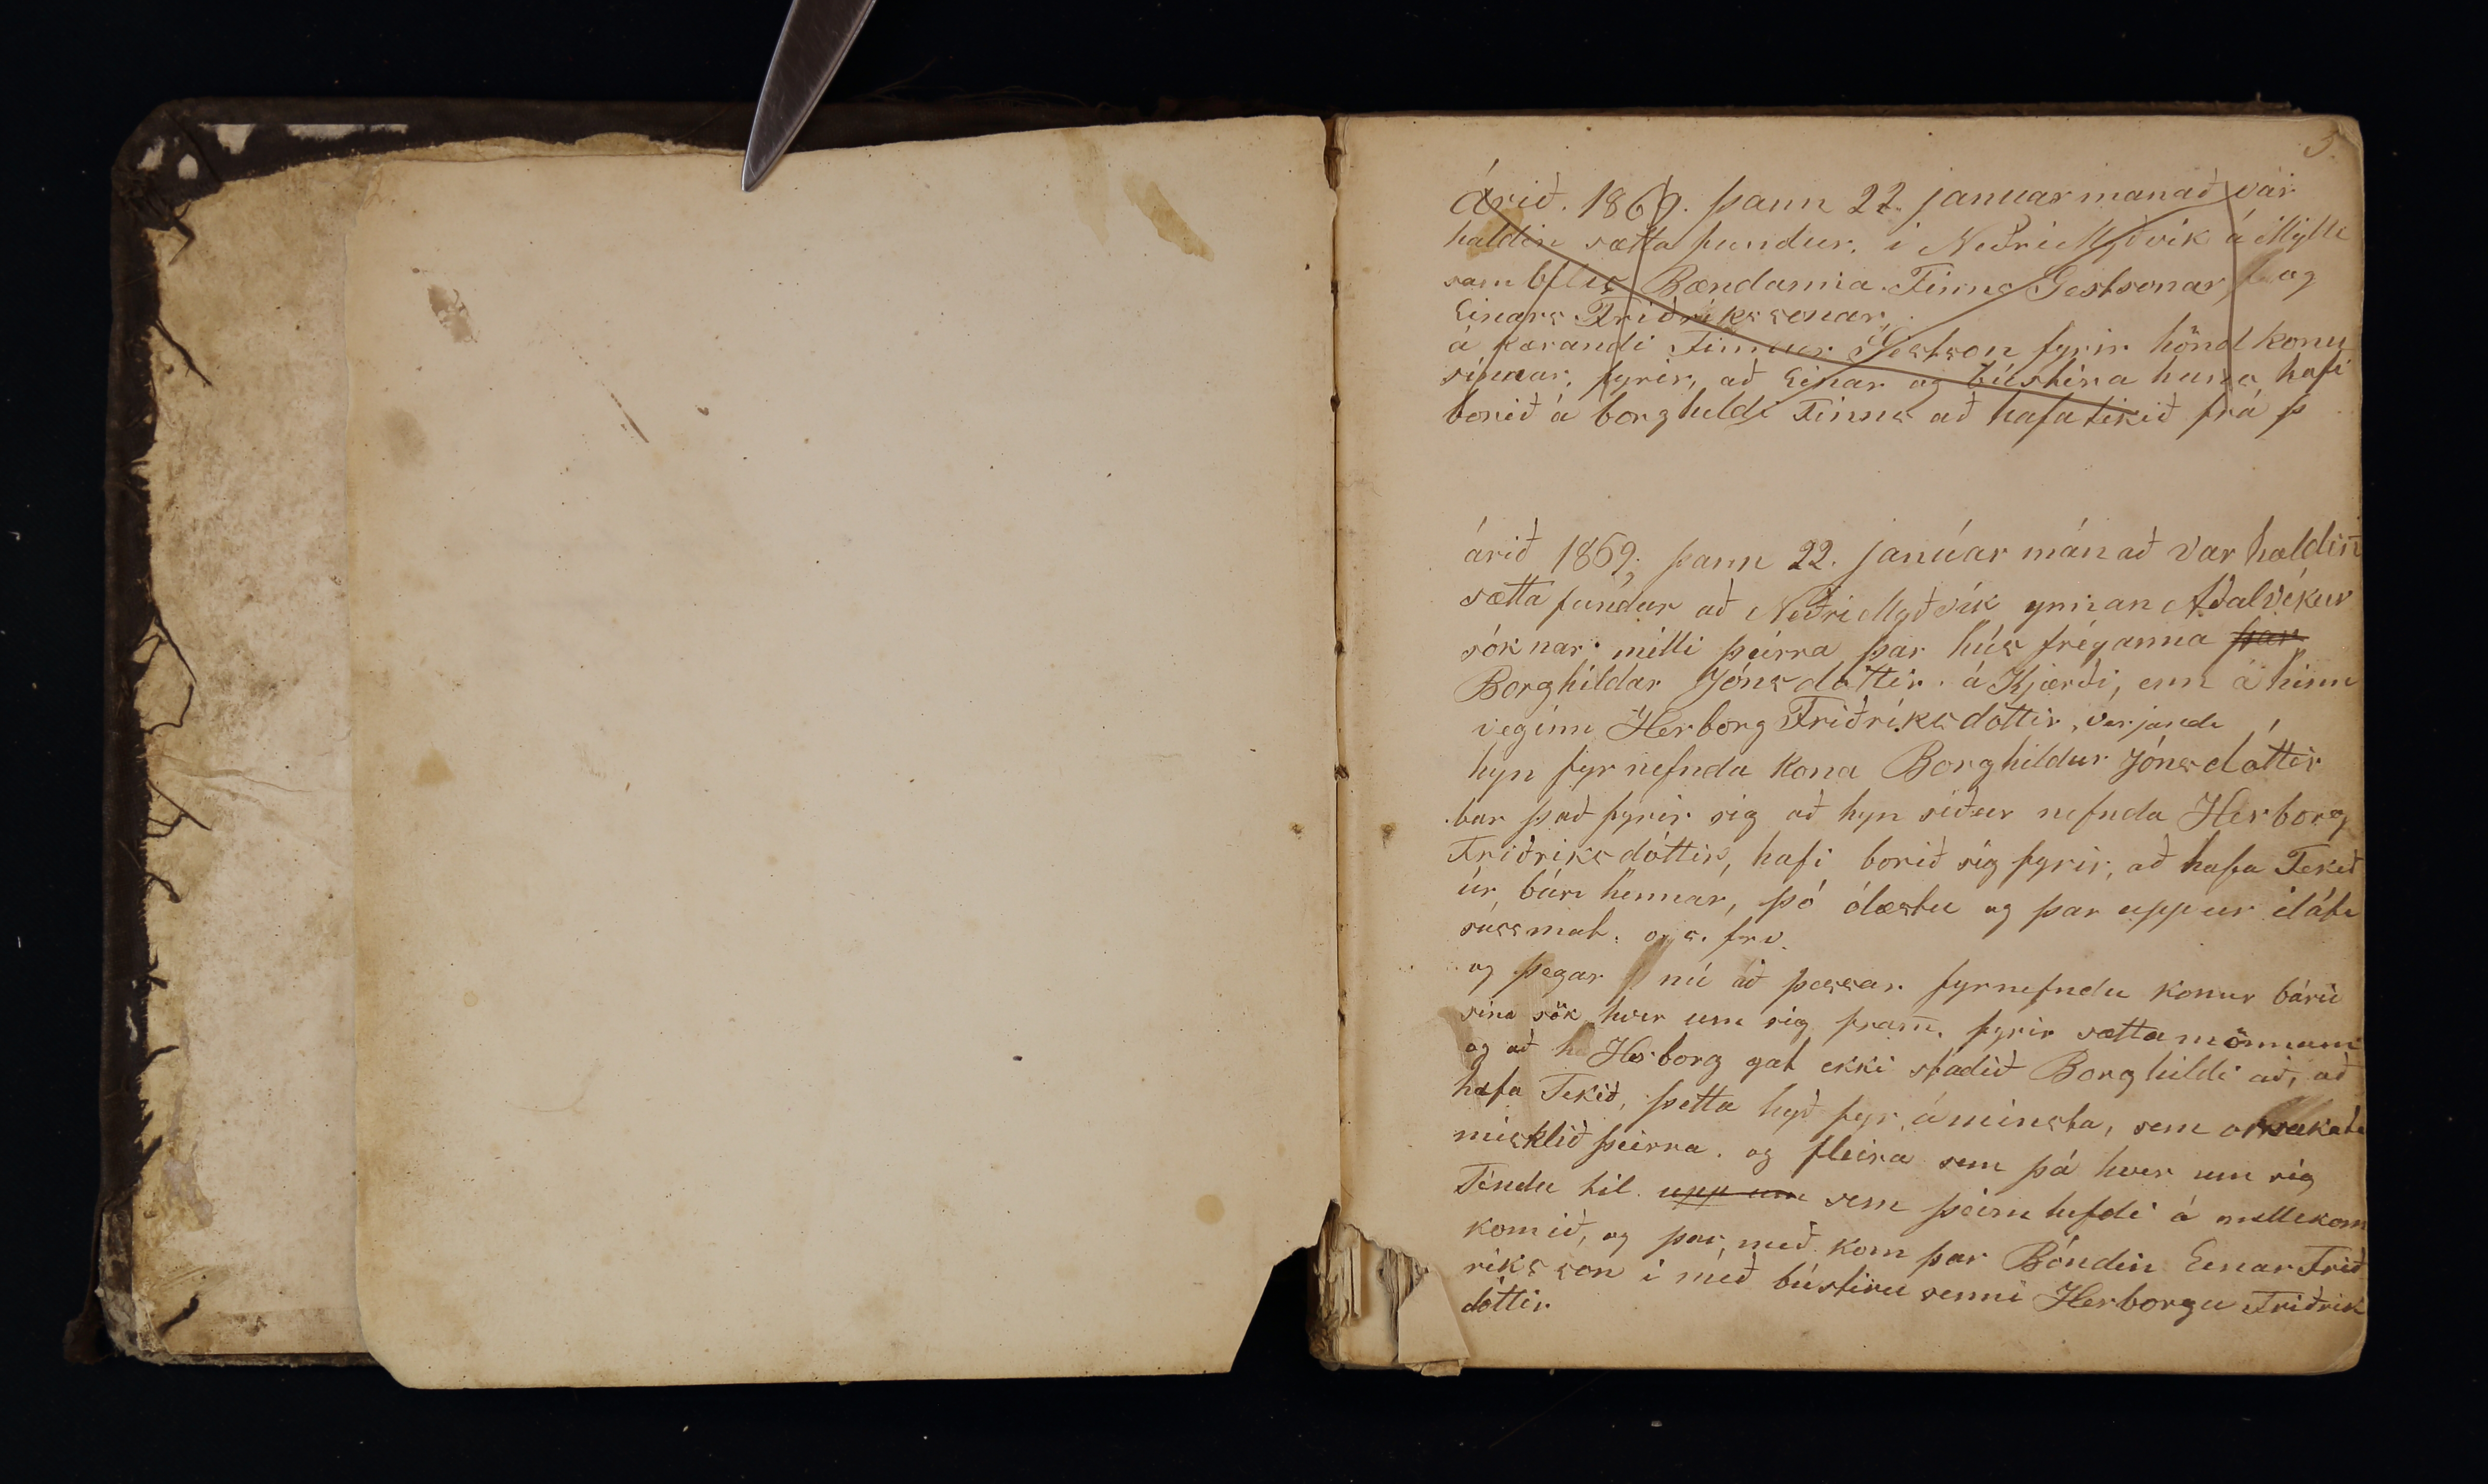 5.
Árið. 1869. þann 22. januarmanað var
haldin sætta fundur, i Neðri Myðvik á Mylli
sambílis Bændanna. Finns Gestsonar, og
Einars Friðrikssonar,
á kærandi Finnur Gestson fyrir hönd konu
sinnar, fyrir, að Einar og bústira hans, hafi
borið á borghildi Finns að hafa tikið frá þ
árið 1869; þann 22. janúar mánað var haldin̄
sætta fundur að Neðri Myðvík ynnan Aðalvíkur
sóknar. milli þeirra þar hús freyanna þar
Borghildar Jónsdóttir. á Kjærði, enn á hinn
veginn Herborg Friðriksdóttir, verjandi
hyn fyr nefnda kona Borghildur Jónsdóttir
bar það fyrir sig að hyn siður nefnda Herborg
Friðriksdóttir, hafi borið sig fyrir, að hafa Tekið
úr búri hennar, þó ólæstu og þar uppur iláti
súrsmat. o.s. frv.
og þegar nú að þessar fyrnefndu konur báru
sina sök hver um sig fram̄. fyrir sættamönnum
og að Herborg gat ekki staðið Borghildi að, að
hafa Tekið, þetta hyð fyr áminsta, sem orsakaði
misklið þeirra. og fleira sem þá hver um sig
Tindu til. upp um sem þeim hefdi á millekom
komið, og þar með kom þar Bóndin Einar Frið
riksson i með bústiru senni Herborgu Friðrik
dóttir.